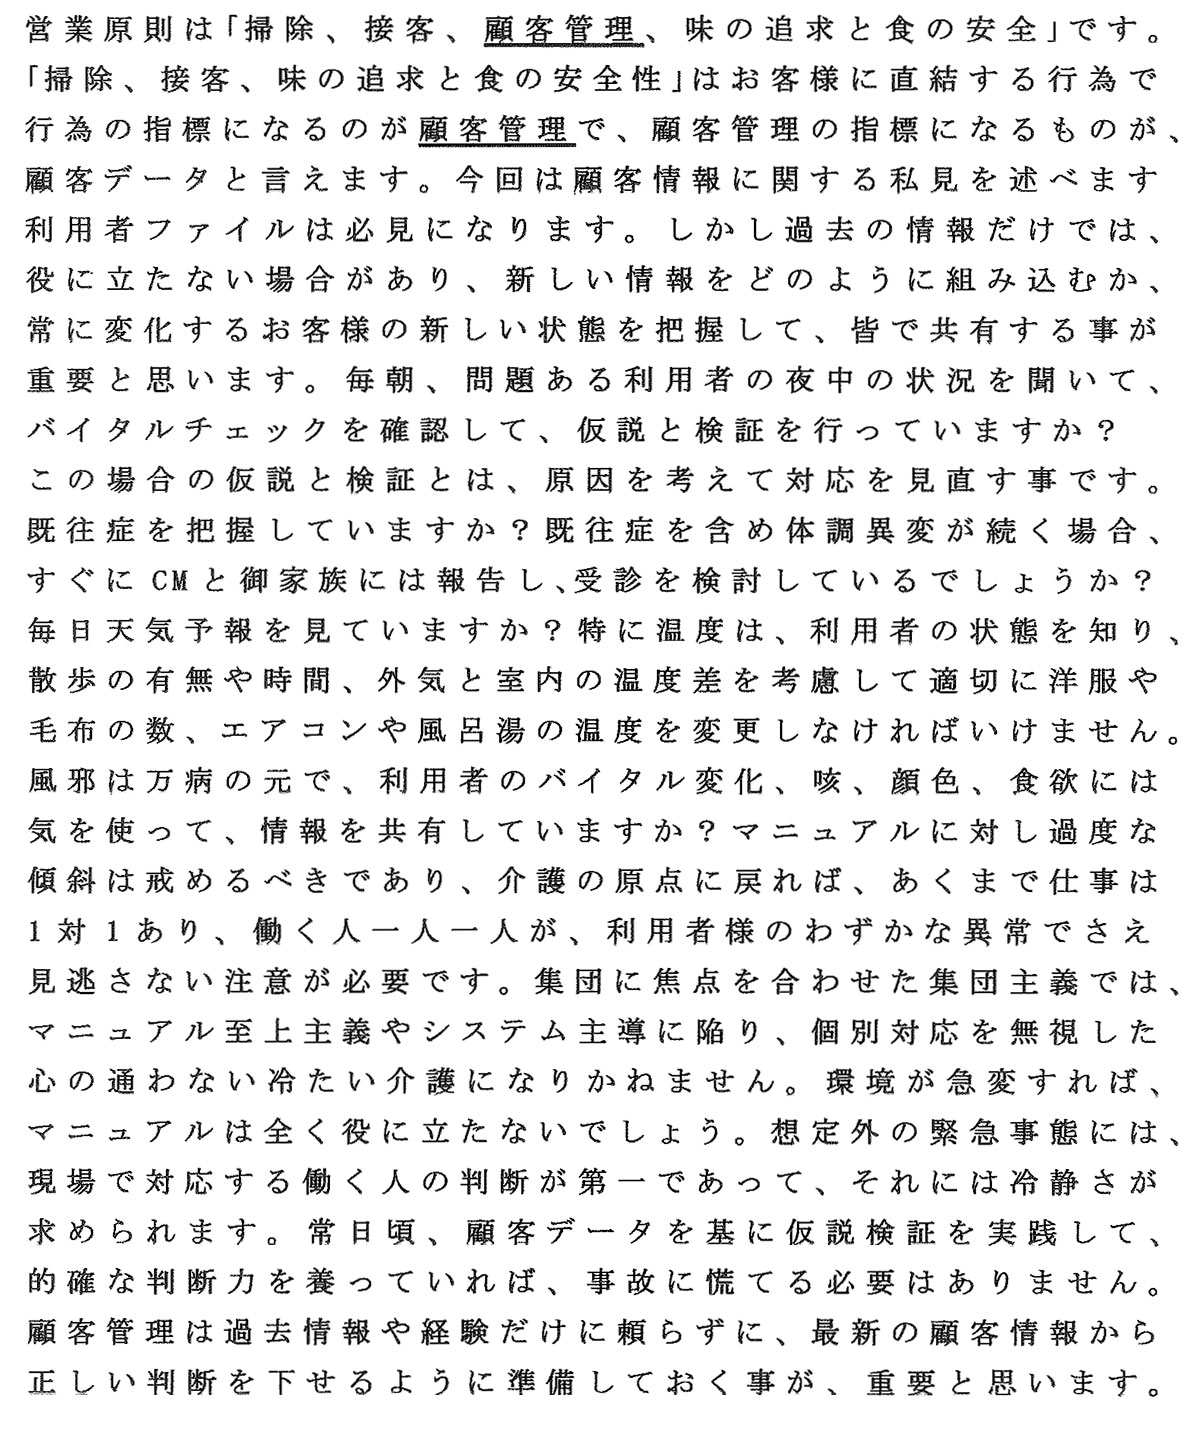 営業原則は「掃除、接客、顧客管理、味の追求と食の安全」です。
「掃除、接客、味の追求と食の安全性」はお客様に直結する行為で
行為の指標になるのが顧客管理で、顧客管理の指標になるものが、
顧客データと言えます。今回は顧客情報に関する私見を述べます
利用者ファイルは必見になります。しかし過去の情報だけでは、
役に立たない場合があり、新しい情報をどのように組み込むか、
常に変化するお客様の新しい状態を把握して、皆で共有する事が
重要と思います。毎朝、問題ある利用者の夜中の状況を聞いて、
バイタルチェックを確認して、仮説と検証を行っていますか?
この場合の仮説と検証とは、原因を考えて対応を見直す事です。
既往症を把握していますか?既往症を含め体調異変が続く場合、
すぐに CMと御家族には報告し、受診を検討しているでしょうか?
毎日天気予報を見ていますか?特に温度は、利用者の状態を知り、
散歩の有無や時間、外気と室内の温度差を考慮して適切に洋服や
毛布の数、エアコンや風呂湯の温度を変更しなければいけません。
風邪は万病の元で、利用者のバイタル変化、咳、顔色、食欲には
気を使って、情報を共有していますか?マニュアルに対し過度な
傾斜は戒めるべきであり、介護の原点に戻れば、あくまで仕事は
1対1あり、働く人一人一人が、利用者様のわずかな異常でさえ
見逃さない注意が必要です。集団に焦点を合わせた集団主義では、
マニュアル至上主義やシステム主導に陥り、個別対応を無視した
心の通わない冷たい介護になりかねません。環境が急変すれば、
マニュアルは全く役に立たないでしょう。想定外の緊急事態には、
現場で対応する働く人の判断が第一であって、それには冷静さが
求められます。常日頃、顧客データを基に仮説検証を実践して、
的確な判断力を養っていれば、事故に慌てる必要はありません。
顧客管理は過去情報や経験だけに頼らずに、最新の顧客情報から
正しい判断を下せるように準備しておく事が、重要と思います。